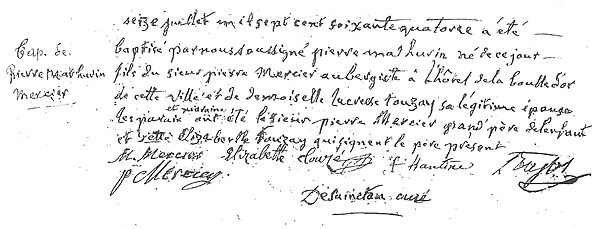 seize juillet mil sept cent soixante quatorze a été
Bap. de
Pierre Mathurin
Mercier
baptisé par nous soussigné pierre mathurin né de ce jour
fils du sieur pierre Mercier aubergiste à L'hôtel de la boulle d'or
de cette ville et de demoiselle Lucresse touzay sa légitime épouse
et maraine
Les parain ont été le sieur pierre Mercier grand père de lenfant
et Elizabethe touzay qui signent le père présent
M. Mercier Elizabette f hantine
p Mercier
Desainctou curé